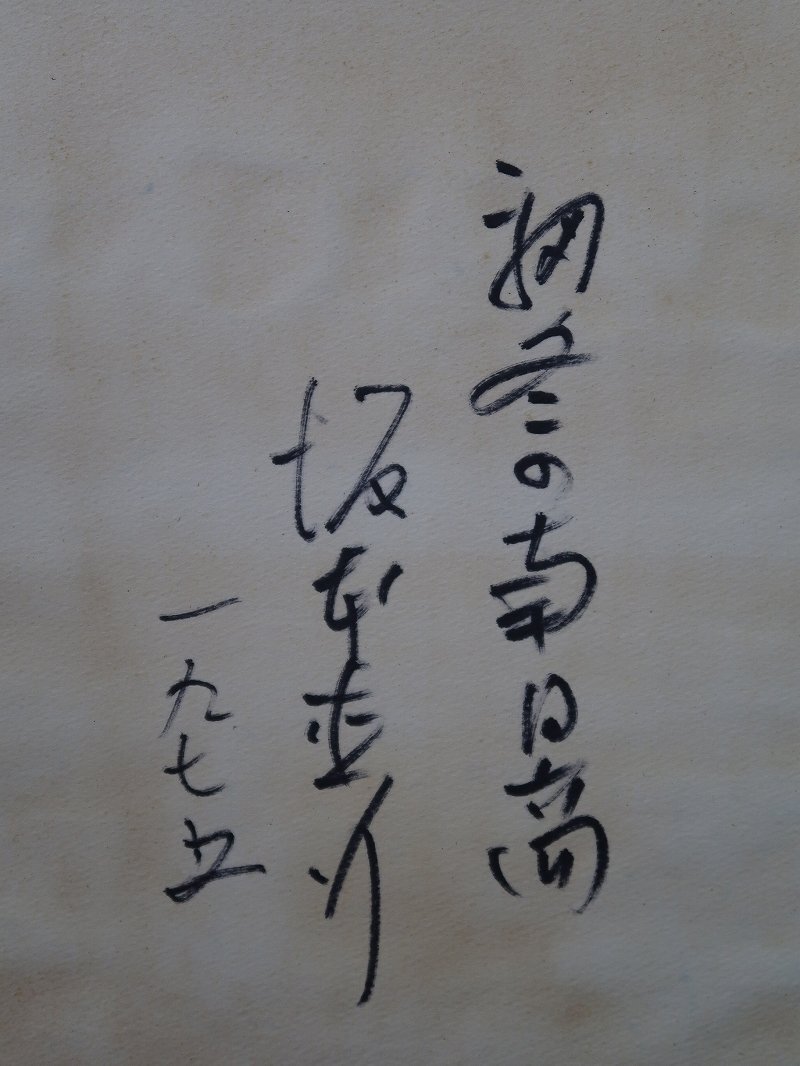 初冬の南日高
坂本直行
一九七五